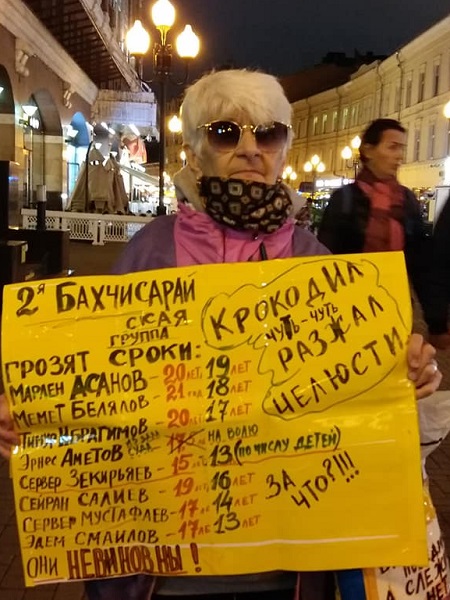 2я БАХЧИСАРАЙ
СКАЯ
ГРУППА
ГРОЗЯТ СРОКИ:
МАРЛЕН АСАНОВ - 20 ЛЕТ 19 ЛЕТ
МЕМЕТ БЕЛЯЛОВ - 21 ГОД 18 ЛЕТ
ТИМУР ИБРАГИМОВ - 20 ЛЕТ 17 ЛЕТ
ЭРНЕС АМЕТОВ НА ВОЛЮ
СЕРВЕР ЗЕКИРЬЯЕВ - 15 ЛЕТ 13 (ПО ЧИСЛУ ДЕТЕЙ)
СЕЙРАН САЛИЕВ - 19 ЛЕТ 16 ЛЕТ
СЕРВЕР МУСТАФАЕВ - 17 ЛЕ 14 ЛЕТ
ЭДЕМ СМАИЛОВ - 17 ЛЕ 13 ЛЕТ
ОНИ НЕВИНОВНЫ!
КРОКОДИЛ
ЧУТЬ-ЧУТЬ
РАЗЖАЛ
ЧЕЛЮСТИ
ЗА
ЧТО?!!!